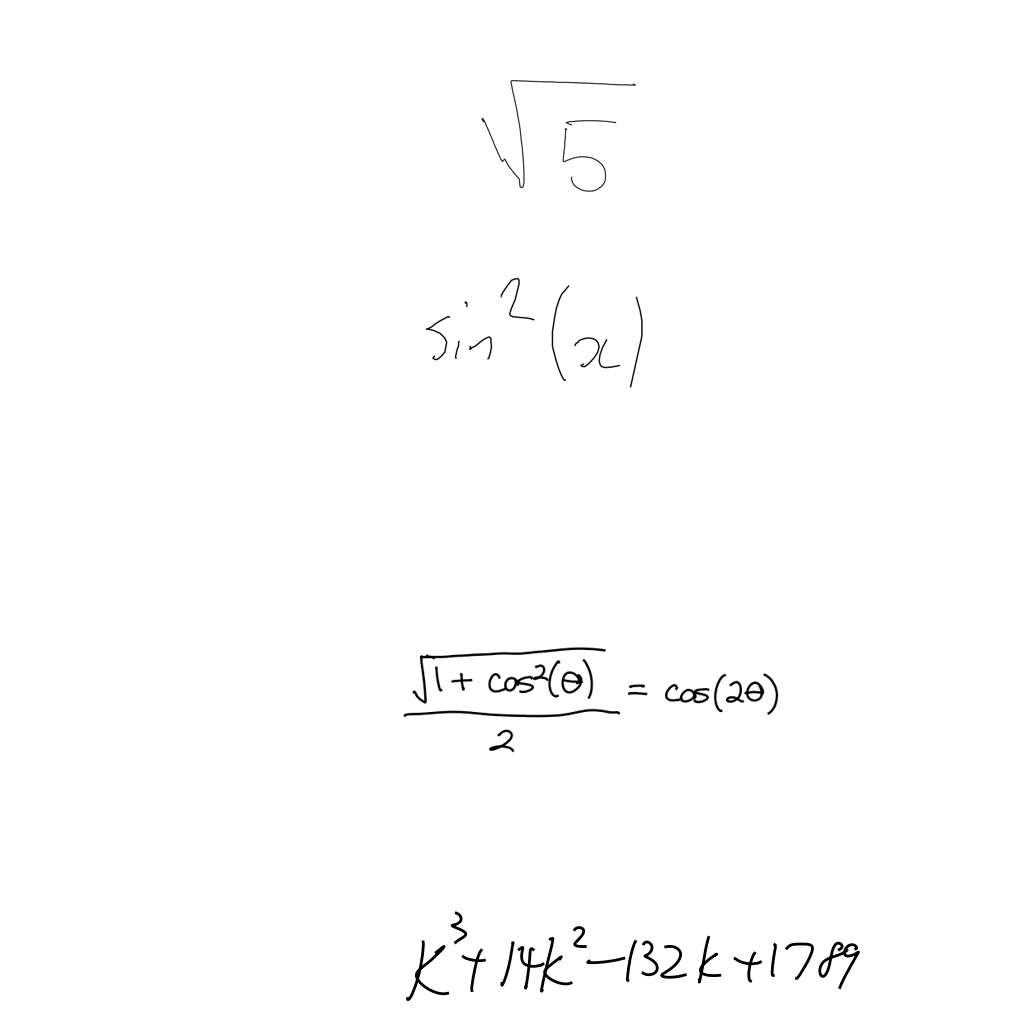 √5
sin²(x)
√(1 + cos²(θ)) / 2 = cos(2θ)
k³+14k²-132k+1789